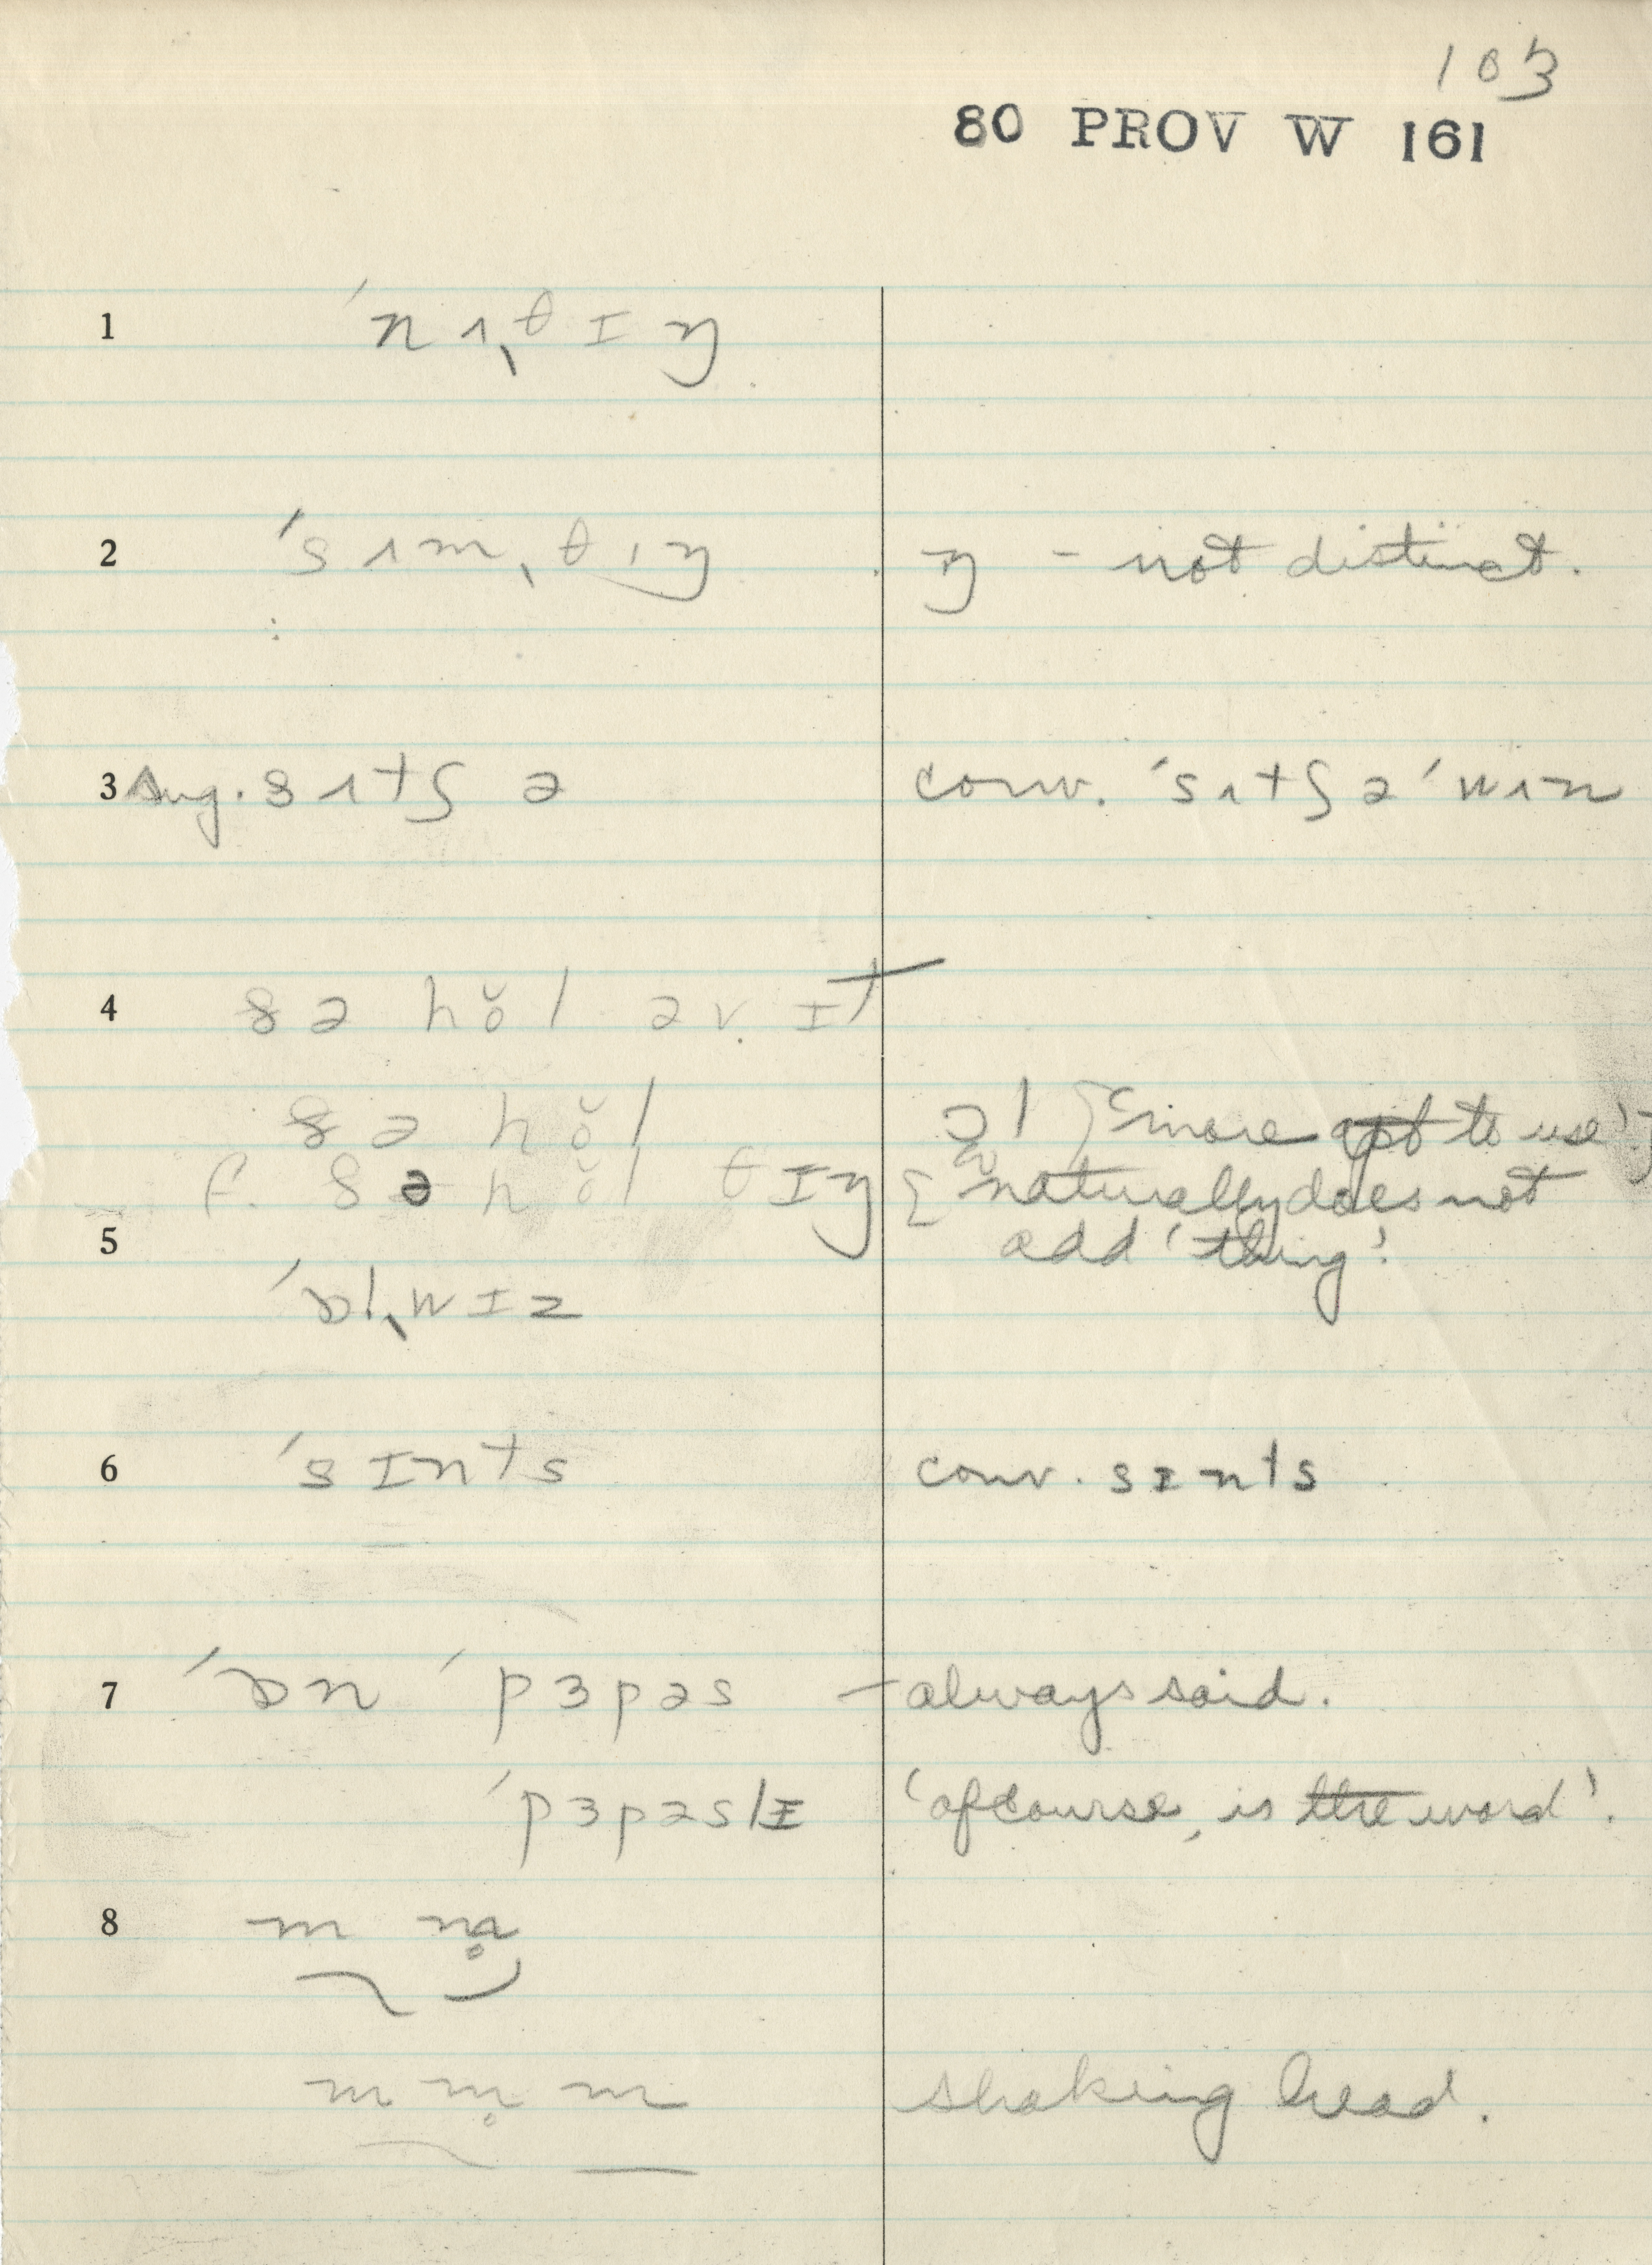 103
80 PROV W 161
1 ˈnɪˌθɪŋ
2 ˈsɪmˌθɪŋ ŋ – not distinct.
3 sug. sɪtʃ ə conv. ˈsɪtʃəˈwɪn
4 ðə hŏl əv ɪt
ðə hŏl ɔl {'more apt to use'}
f. ðə hŏl θɪŋ {naturally does not
add 'thing'.
5 ˈɒlˌwɪz
6 ˈsɪnts conv. sɪnts
7 ˈɒn ˈpɜpəs – always said.
ˈpɜpəslɪ 'of course, is the word'.
8 m m̥
m m̥ m shaking head.